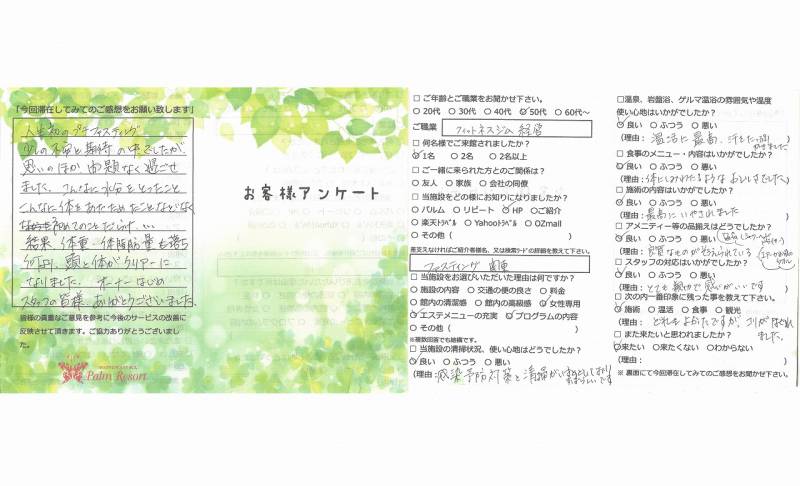 「今回滞在してみてのご感想をお願い致します」
人生初のプチファスティング
少しの不安と期待の中でしたが
思いのほか問題なく過ごせ
ました。こんなに水分をとったこと
こんなに体をあたためたことなどなく
初めてのことだらけ…
結果、体重、体脂肪量も落ち
何より、頭と体がクリアーに
なりました。オーナーはじめ
スタッフの皆様、ありがとうございました
皆様の貴重なご意見を参考に今後のサービスの改善に
反映させて頂きます。ご協力ありがとうございまし
た。
Palm Resort
お客様アンケート
□ ご年齢とご職業をお聞かせ下さい。
○ 20代 ○ 30代 ○ 40代 ○ 50代 ○ 60代～
ご職業 フィットネスジム 経営
□ 何名様でご来館されましたか？
○ 1名 ○ 2名 ○ 2名以上
□ ご一緒に来られた方とのご関係は？
○ 友人 ○ 家族 ○ 会社の同僚
□ 当施設をどの様にお知りになりましたか？
○ パルム ○ リピート ○ HP ○ ご紹介
○ 楽天トラベル ○ Yahoo!トラベル ○ OZmall
○ その他（ ）
差支えなければご紹介者様名、又は検索ワードの詳細を教えて下さい。
ファスティング 関東
□ 当施設をお選びいただいた理由は何ですか？
○ 施設の内容 ○ 交通の便の良さ ○ 料金
○ 館内の清潔感 ○ 館内の高級感 ○ 女性専用
○ エステメニューの充実 ○ プログラムの内容
○ その他（ ）
※複数回答でも結構です。
□ 当施設の清掃状況、使い心地はどうでしたか？
○ 良い ○ ふつう ○ 悪い
(理由: 感染予防対策と清掃が
□温泉、岩盤浴、ゲルマ温浴の雰囲気や温度
使い心地はいかがでしたか？
○ 良い ○ ふつう ○ 悪い
(理由: 温活に最高、汗を
□ 食事のメニュー・内容はいかがでしたか？
○ 良い ○ ふつう ○ 悪い
(理由: 体にしみわたるような おいしさでした
□ 施術の内容はいかがでしたか？
○ 良い ○ ふつう ○ 悪い
(理由: 最高にいやされました )
□ アメニティー等の品揃えはどうでしたか？
○ 良い ○ ふつう ○ 悪い
(理由: 良質なものがそろえられている
□ スタッフの対応はいかがでしたか？
○ 良い ○ ふつう ○ 悪い
(理由: とても親切で感じがいいです
□ 次の内一番印象に残った事を教えて下さい。
○ 施術 ○ 温活 ○ 食事 ○ 観光
(理由: どれもよかったですが、コリがほぐれ
ました。
□ また来たいと思われましたか？
○ 来たい ○ 来たくない ○ わからない
(理由: )
※ 裏面にて今回滞在してみてのご感想をお聞かせ下さい。